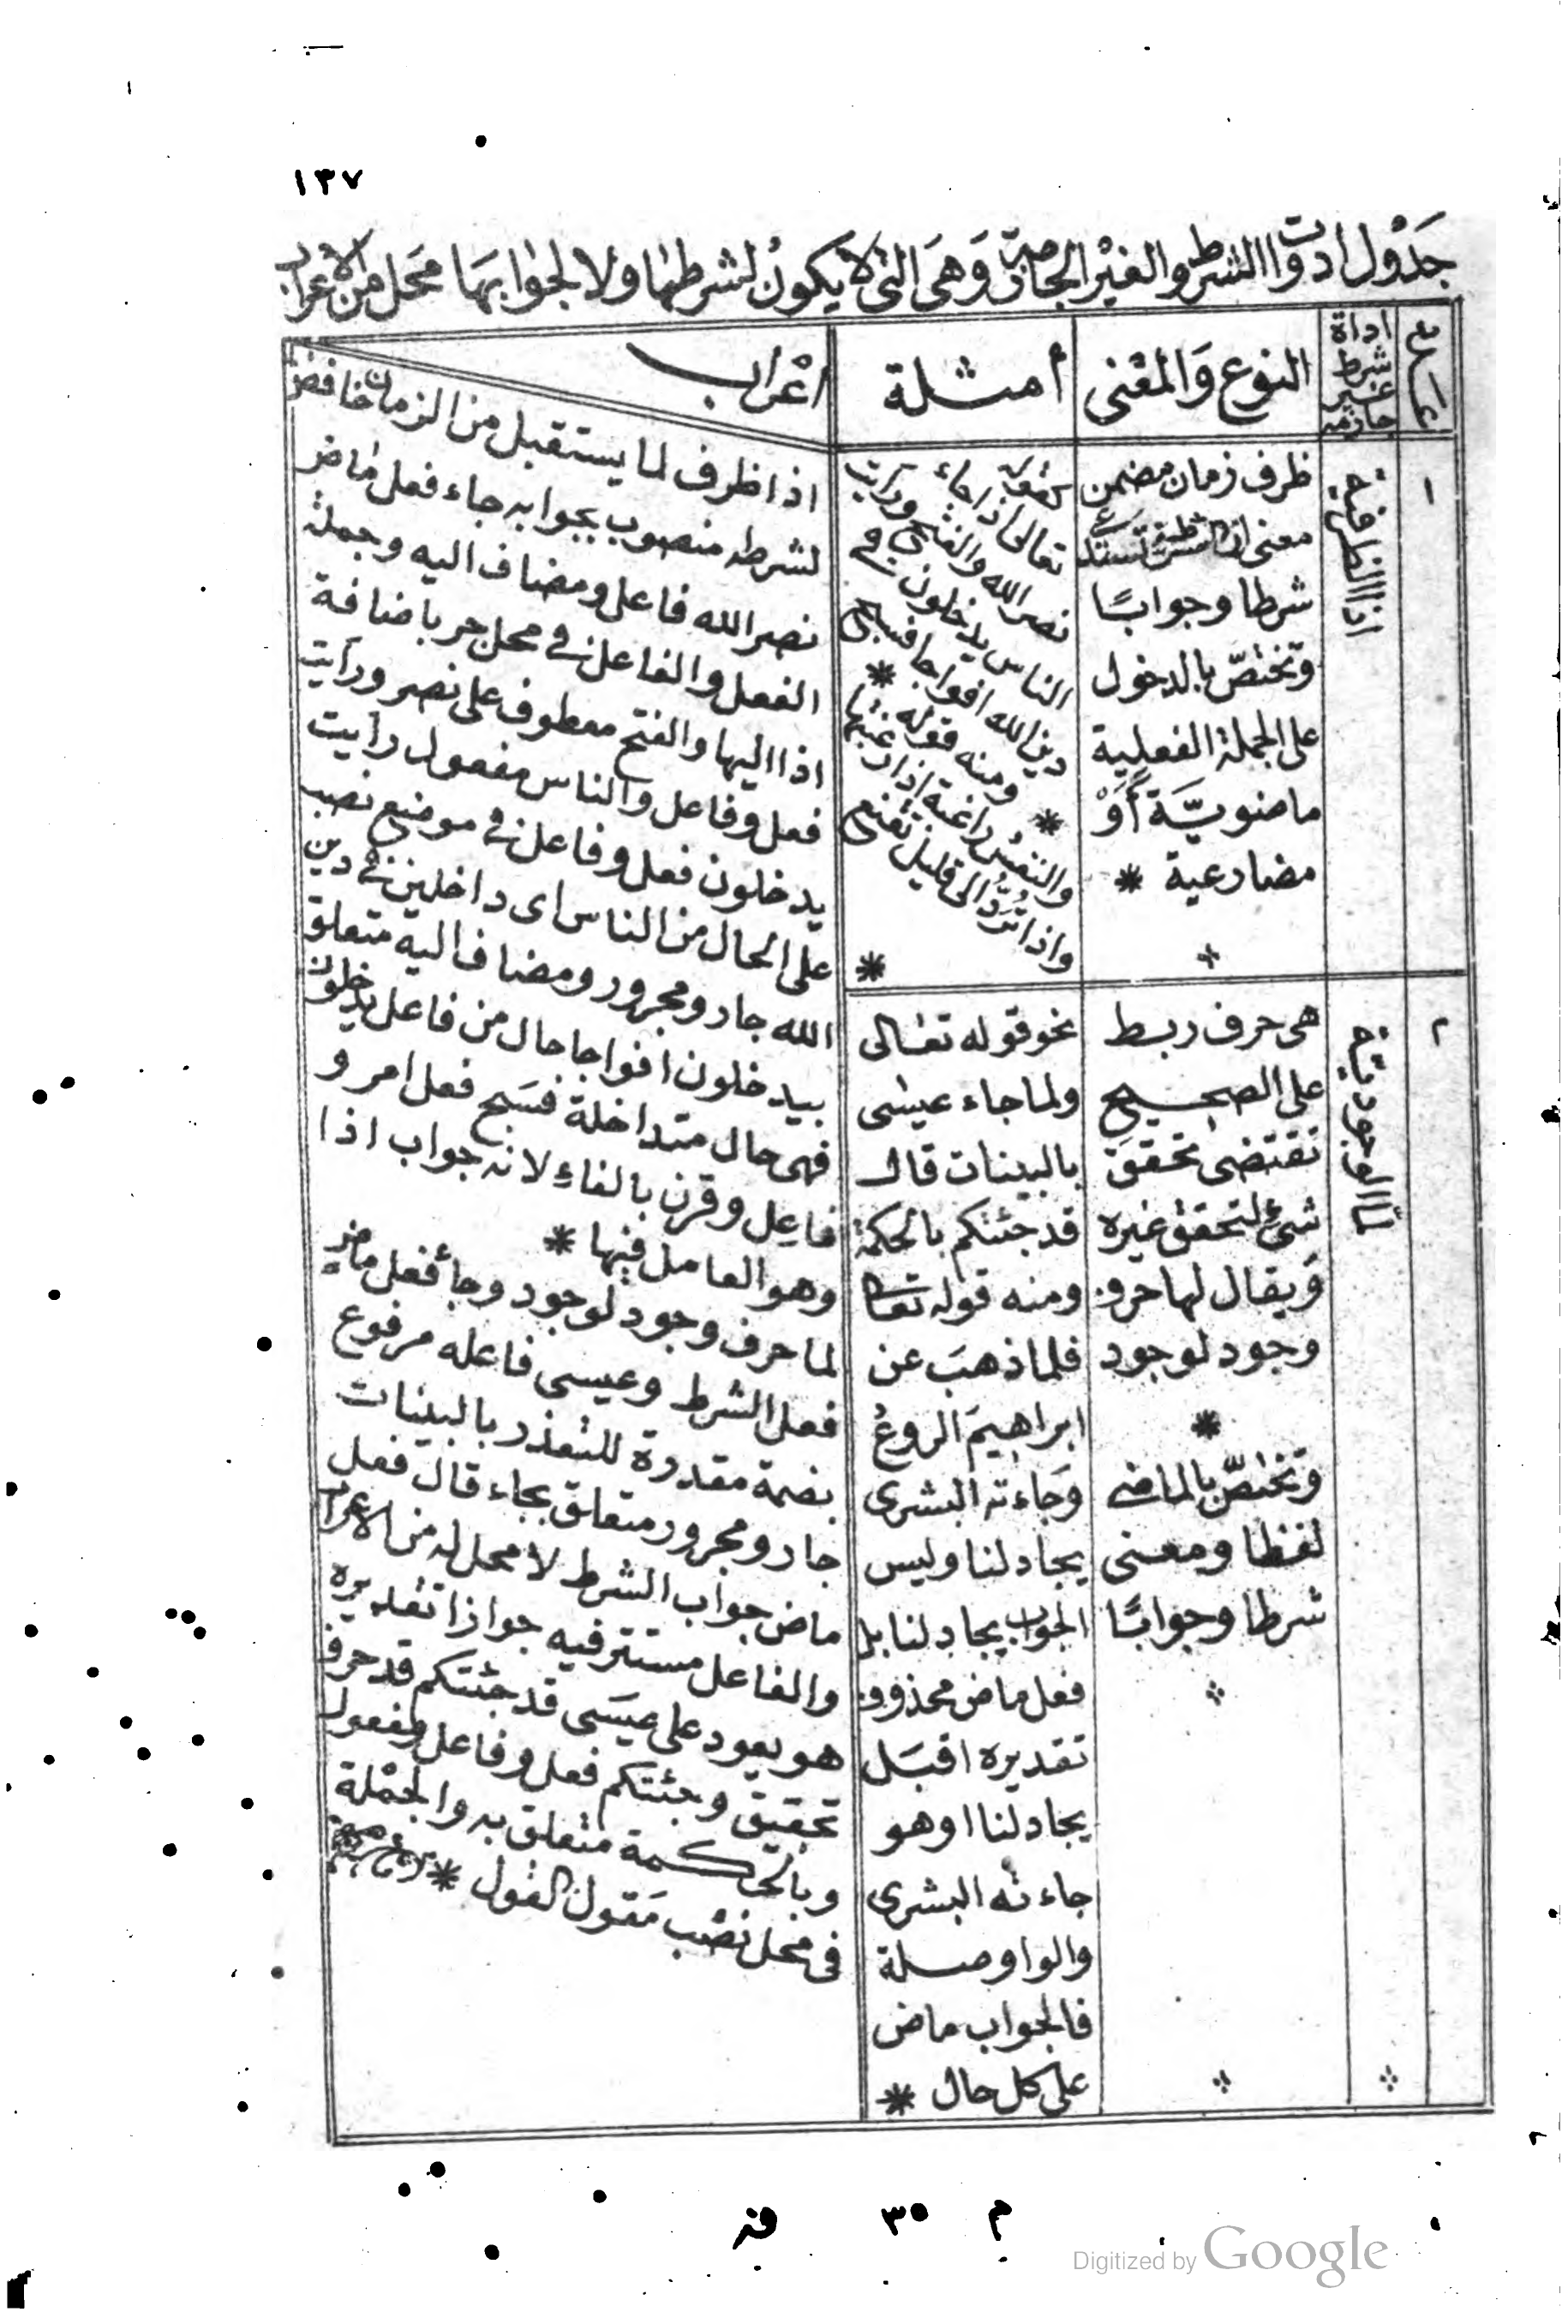 ١٣٧
جَدْوَل ادوات الشرط والغيْر الجازمة وَهىَ التى لا يكونُ لشرطها ولا لجوابهَا محَل من الاعراب
اداة
شرط
غير
جازمه
النوع وَالمعْنى
أمثلة
اعْراب
١
اذا الظرفية
ظرف زمان مضمن
معنى ان الشرطية تستدعى
شرطا وجوابًا
وتختصّ بالدخول
على الجملة الفعلية
ماضويَّة أَوْ
مضارعية *
كقوله
تعالى اذا جاء
نصر الله والفتح ورأيت
الناس يدخلون فى
دين الله افواجا فسبح *
* ومنه قوله
والنفسُ راغبة اذا رغبتها
واذا تُردُّ الى قليل تقنع
*
اذا ظرف لما يستقبل من الزمان خافض
لشرطه منصوب بجوابه جاء فعل ماض
نصر الله فاعل ومضاف اليه وجملة
الفعل والفاعل فى محل جر باضافة
اذا اليها والفتح معطوف على نصر ورأيت
فعل وفاعل والناس مفعول رأيت
يدخلون فعل وفاعل فى موضع نصب
على الحال من الناس اى داخلين فى دين
الله جار ومجرور ومضاف اليه متعلق
بيدخلون افواجا حال من فاعل يدخلون
فهى حال متداخلة فسَبح فعل امر و
فاعل وقرن بالفاء لانه جواب اذا
وهو العامل فيها *
٢
لمّا الوجودية
هى حرف ربط
على الصحيح
تقتضى تحققَ
شئ لتحقق غيره
وَيقال لها حرف
وجود لوجود
*
وتختصّ بالماضى
لفظا ومعنى
شرطا وجوابًا
نحو قوله تعالى
ولما جاء عيسى
بالبينات قال
قد جئتكم بالحكمة
ومنه قوله تعالى
فلما ذهبَ عن
ابراهيمَ الروعُ
وَجاءته البشرى
يجادلنا وليس
الجواب يجادلنا بل
فعل ماض محذوف
تقديره اقبَل
يجادلنا او هو
جاءته البشرى
والواو صلة
فالجواب ماض
على كل حال *
لما حرف وجود لوجود وجاءَ فعل ماض
فعل الشرط وعيسى فاعله مرفوع
بضمة مقدرة للتعذر بالبينات
جار ومجرور متعلق بجاء قال فعل
ماض جواب الشرط لا محل له من الاعراب
والفاعل مستتر فيه جوازا تقديره
هو يعود على عيسَى قد جئتكم قد حرف
تحقيق وجئتكم فعل وفاعل ومفعول
وبالحكمة متعلق به والجمْلة
فى محل نصْب مَقول القول *
م ٣٥ قنـ
Digitized by Google